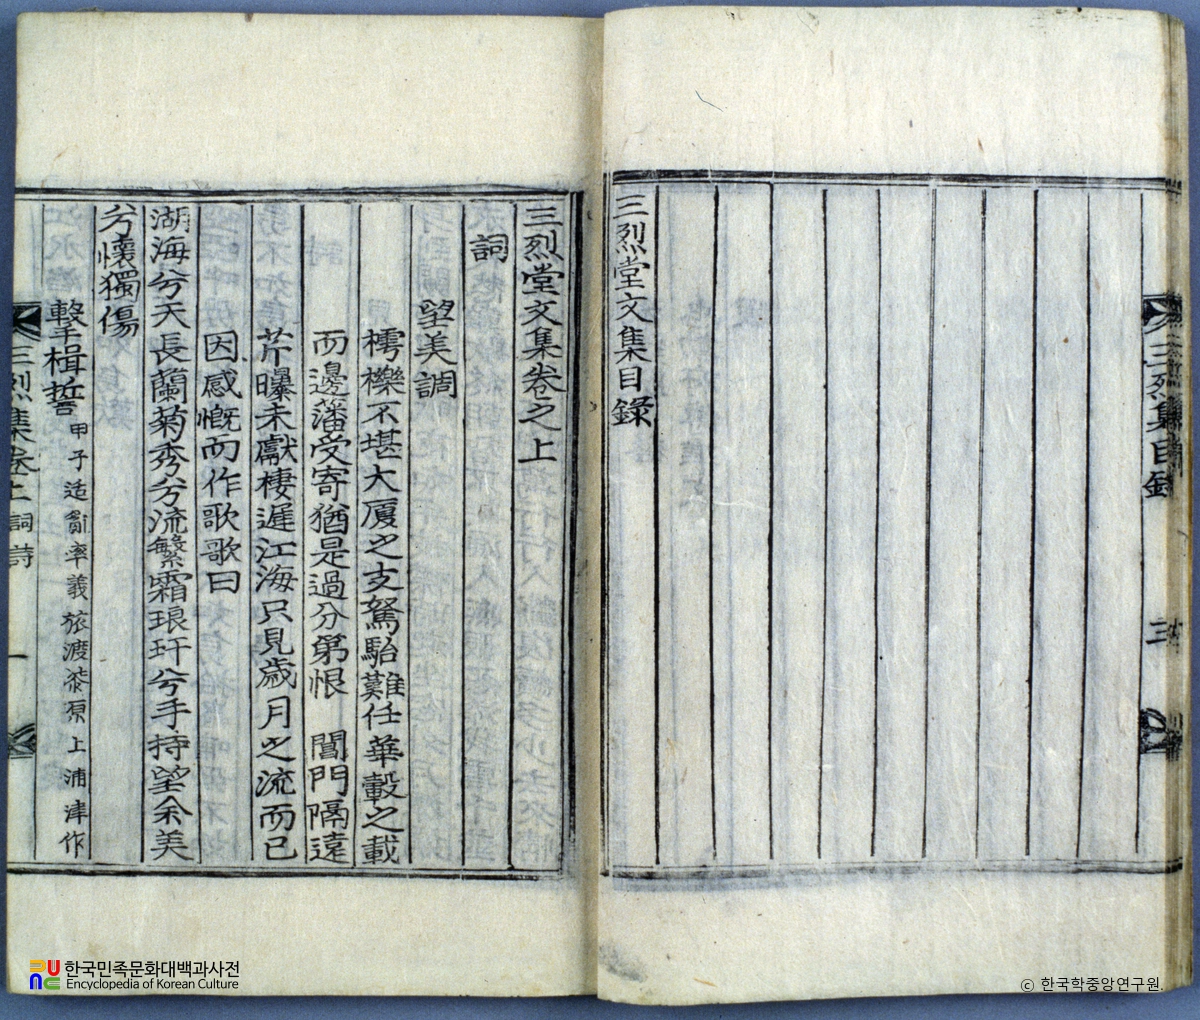 三烈集目錄
三
三烈堂文集目錄
三烈堂文集卷之上
詞
望美調
樗櫟不堪大厦之支駑駘難任華轂之載
而邊藩受寄猶是過分第恨 閶門隔遠
芹曝未獻棲遲江海只見歲月之流而已
因感慨而作歌歌曰
湖海兮天長蘭菊秀兮流繁霜琅玕兮手持望余美
兮懷獨傷
擊楫誓 甲子适 率義旅渡 原上浦津作
三烈集卷上 詞詩
一
PUNC 한국민족문화대백과사전
Encyclopedia of Korean Culture
© 한국학중앙연구원.